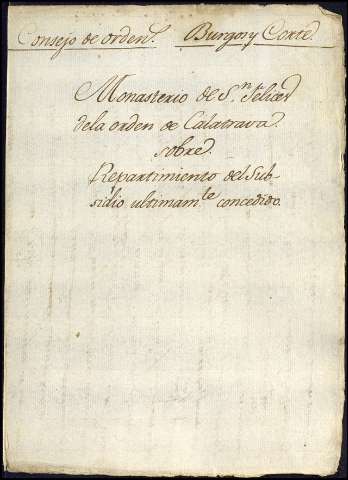 Consejo de orden.s Burgos y Corte.
Monasterio de S.n Felices
de la orden de Calatrava.
sobre
Repartimiento del Sub-
sidio ultimam.te concedido.